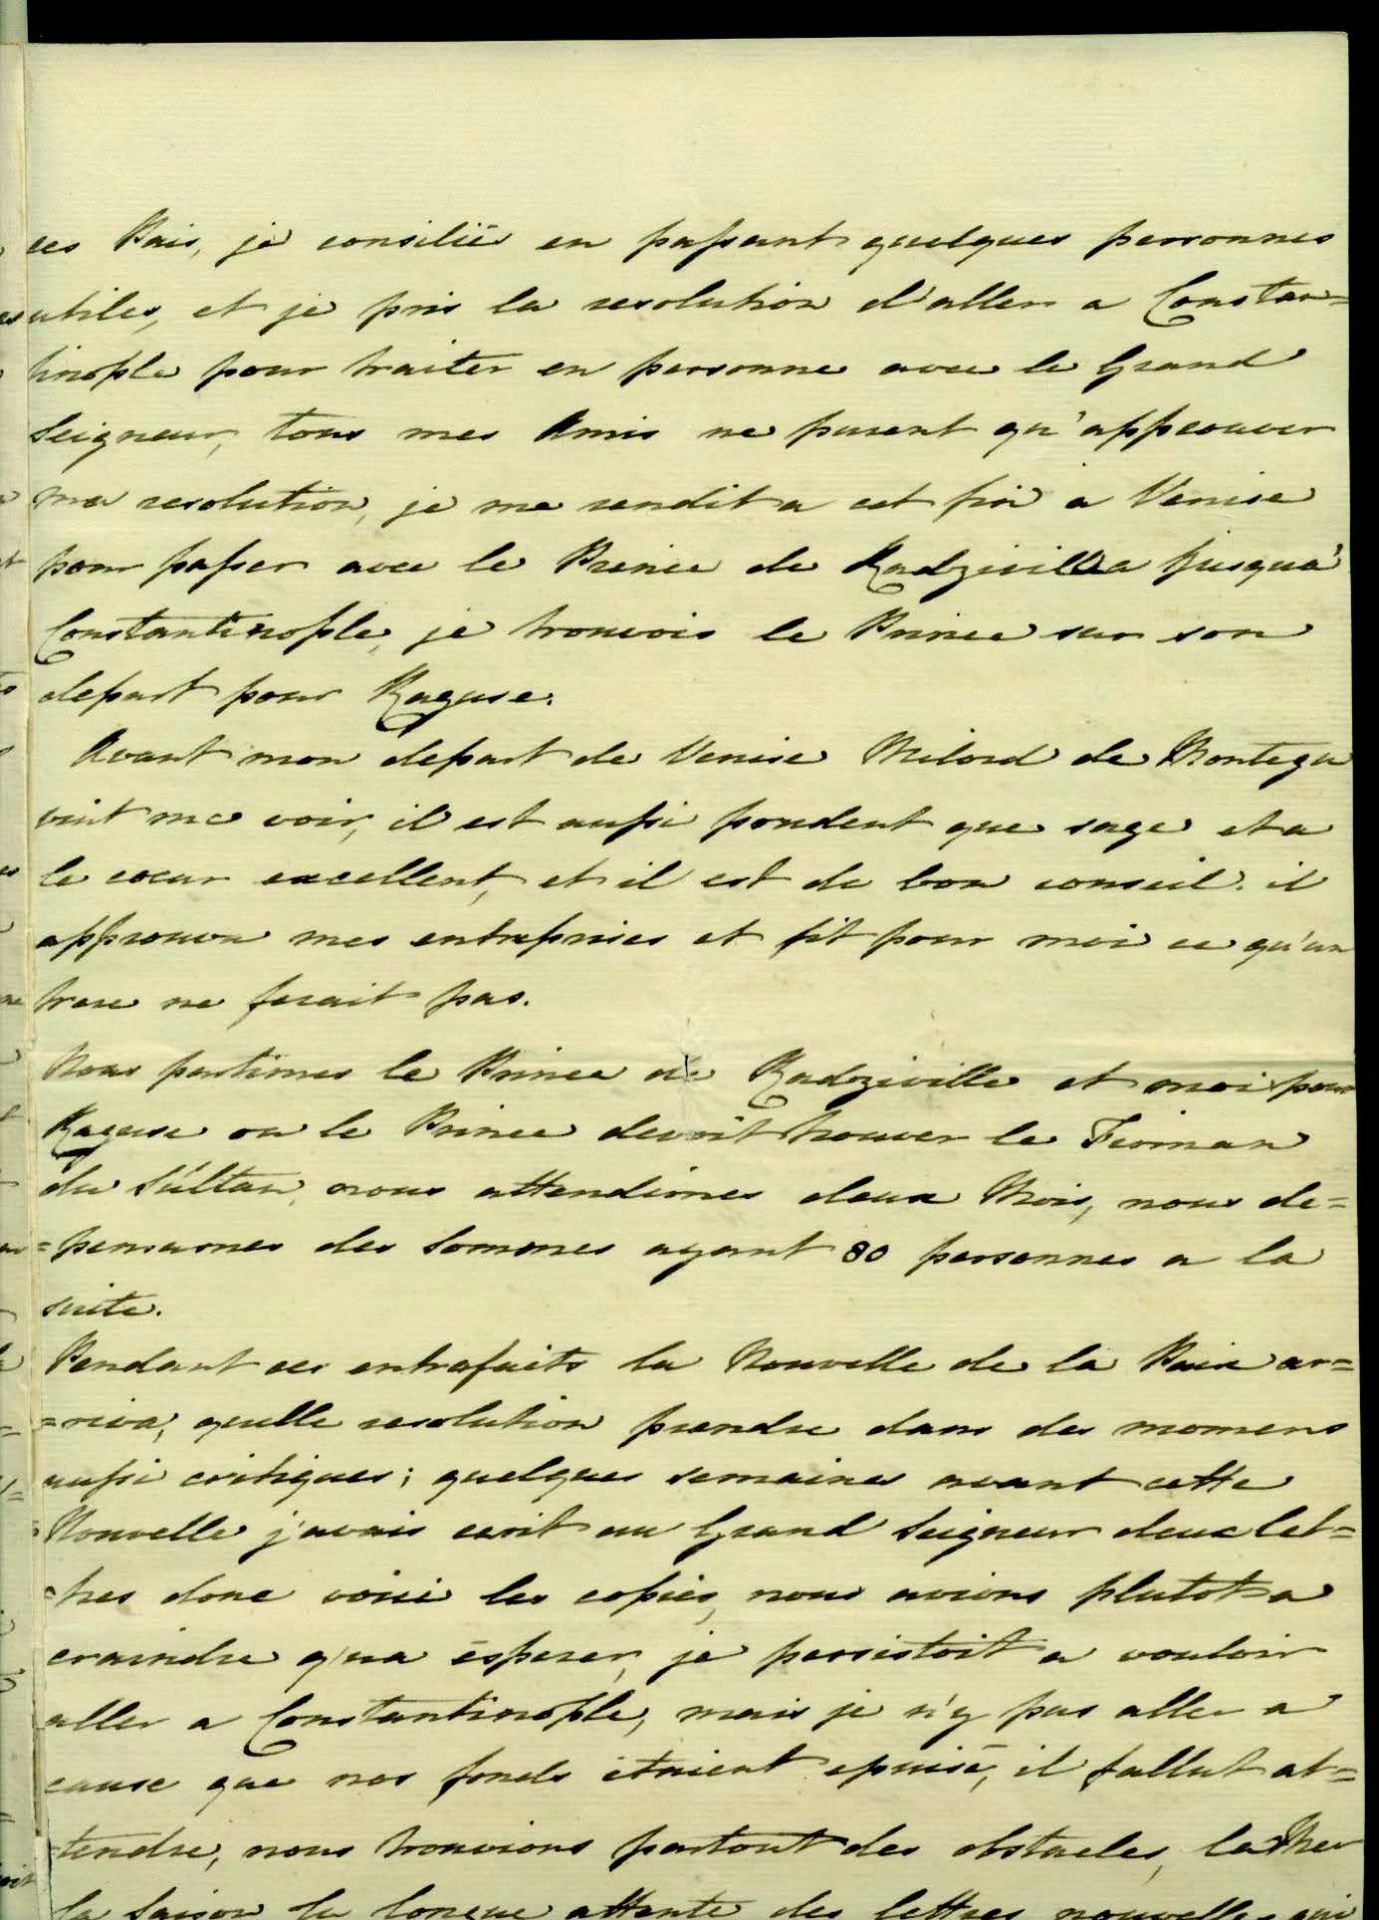 ces Païs, je consiliés en passant quelques personnes
utiles, et je pris la resolution d'aller a Constan=
tinople pour traiter en personne avec le Grand
Seigneur, tous mes Amis ne purent qu'approuver
ma resolution, je me rendit a cet fin a Venise
pour passer avec le Prince de Radzivilla jusqua'
Constantinople, je trouvois le Prince sur son
depart pour Raguse.
Avant mon depart de Venise Milord de Montegu
vint me voir, il est aussi prudent que sage et a
le coeur excellent, et il est de bon conseil. il
approuva mes entreprises et fit pour moi ce qu'un
frere ne ferait pas.
Nous partimes le Prince de Radziville et moi pour
Raguse ou le Prince devoit trouver le Firman
du Sultan, nous attendimes deux Mois, nous de=
=pensames des sommes ayant 80 personnes a la
suite.
Pendant ces entrefaits la Nouvelle de la Paix ar=
=riva, quelle resolution prendre dans des momens
aussi critiques; quelques semaines avant cette
Nouvelle j'avais ecrit au Grand Seigneur deux let=
=tres donc voici les copies, nous avions plutot a
craindre q'ua esperer, je persistoit a vouloir
aller a Constantinople, mais je n'y pas aller a
cause que nos fonds étaient epuisé, il fallut at=
tendre, nous trouvions partout des obstacles, la Mer
la Saison la longue attente des lettres nouvelles qui